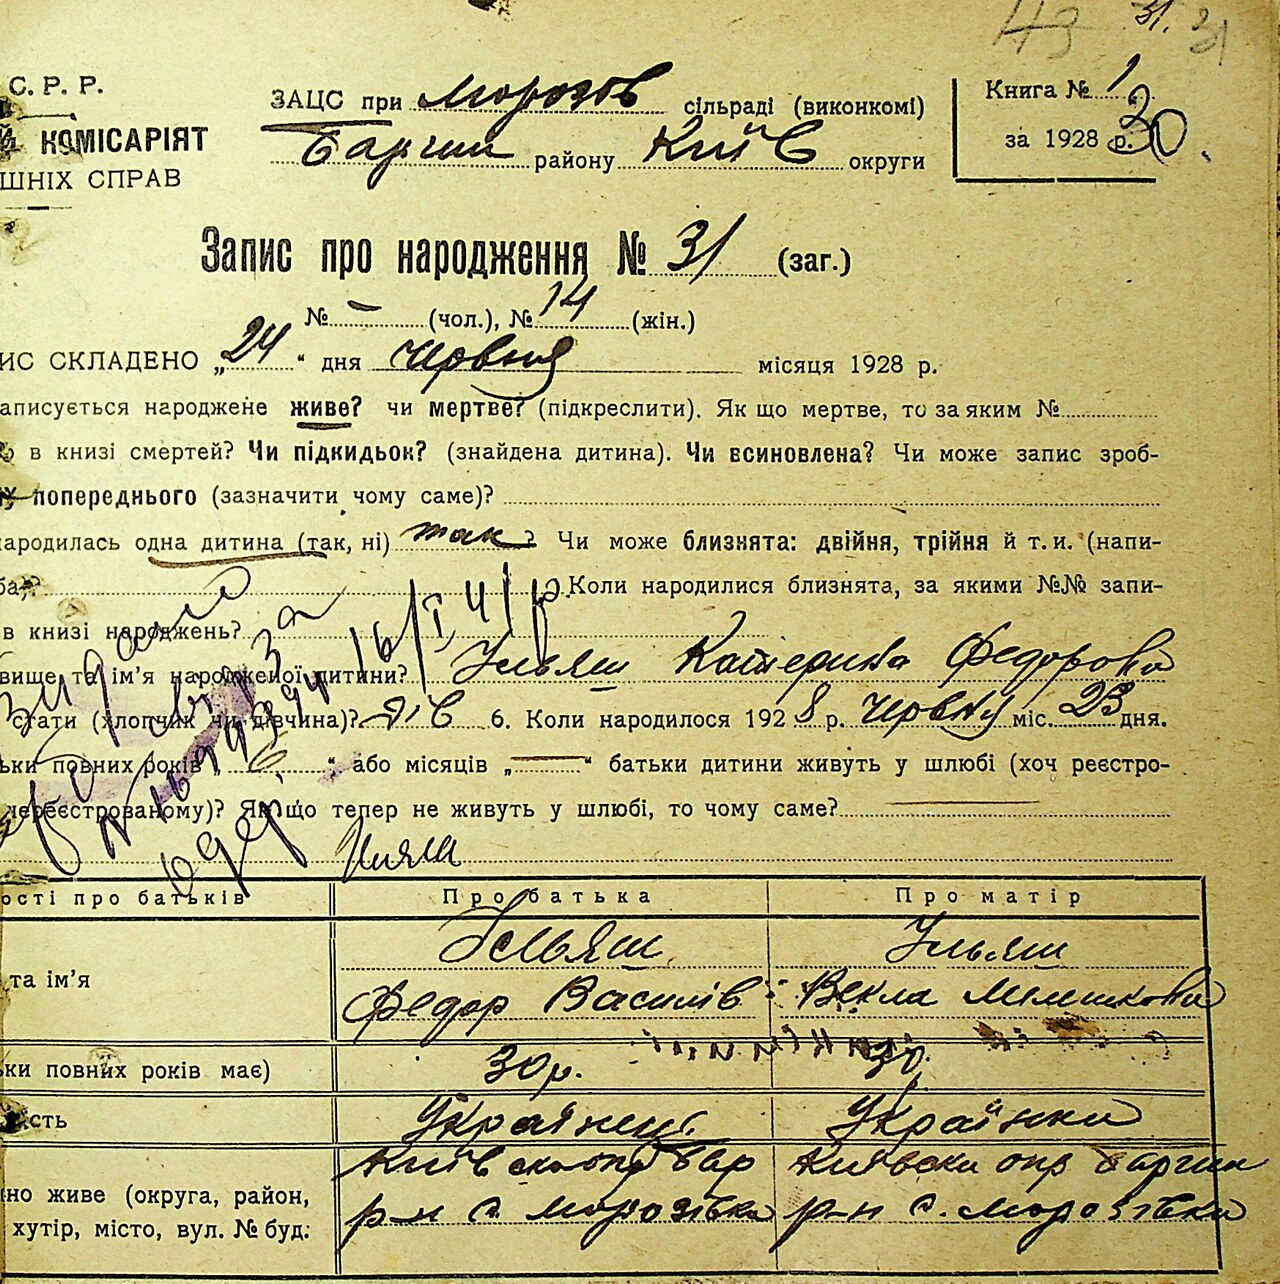 43 31. 31
С. Р. Р.
КОМІСАРІЯТ
ШНІХ СПРАВ
ЗАЦС при Морозов сільраді (виконкомі)
Баргин району Київ округи
Книга № 1
за 1928 р. 30.
Запис про народження № 31 (заг.)
№ – (чол.), № 14 (жін.)
ИС СКЛАДЕНО „24“ дня червня місяця 1928 р.
аписується народжене живе? чи мертве? (підкреслити). Як що мертве, то за яким №
в книзі смертей? Чи підкидьок? (знайдена дитина). Чи всиновлена? Чи може запис зроб-
попереднього (зазначити чому саме)?
народилась одна дитина (так, ні) так? Чи може близнята: двійня, трійня й т. и. (напи-
ба? Коли народилися близнята, за якими №№ запи-
в книзі народжень? 16/I 41 р
вище та ім'я народженої дитини? Ульяш Катерина Федорова
стати (хлопчик чи дівчина)? Дів 6. Коли народилося 1928 р. Червня міс. 23 дня.
ьки повних років „6“ або місяців „—“ батьки дитини живуть у шлюбі (хоч реєстро-
нереєстрованому)? Як що тепер не живуть у шлюбі, то чому саме?
ості про батьків Про батька Про матір
Ульяш Ульяш
та ім'я
Федор Василів Векла Мелешкова
ки повних років має) 30 р. 30
ість Українець Українка
Київської окр Бар Київськи окр Баргин
но живе (округа, район,
р-н с. Морозівка р-н с. Морозівка
хутір, місто, вул. № буд: